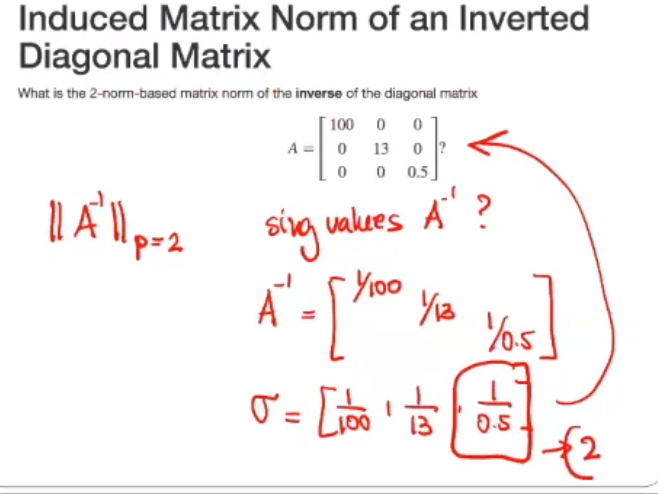 Induced Matrix Norm of an Inverted
Diagonal Matrix
What is the 2-norm-based matrix norm of the inverse of the diagonal matrix
A = [ 100 0 0
0 13 0
0 0 0.5 ] ?
|| A⁻¹ ||ₚ₌₂ sing values A⁻¹ ?
A⁻¹ = [ 1/100 1/13 1/0.5 ]
σ = [ 1/100 , 1/13 , 1/0.5 ] → 2